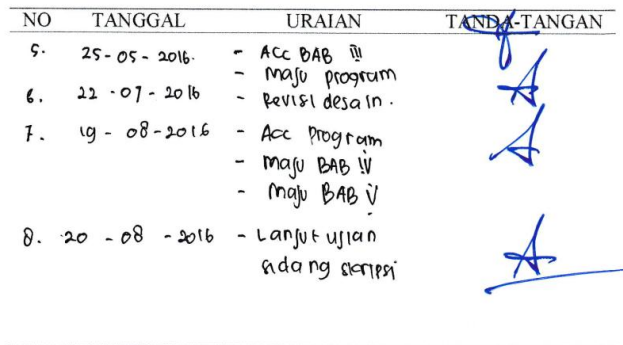 NO TANGGAL URAIAN TANDA-TANGAN
5. 25-05-2016. - Acc BAB III
- Maju program
6. 22-07-2016 - Revisi desain.
7. 19-08-2016 - Acc Program
- Maju BAB IV
- Maju BAB V
8. 20-08-2016 - Lanjut ujian
sidang skripsi